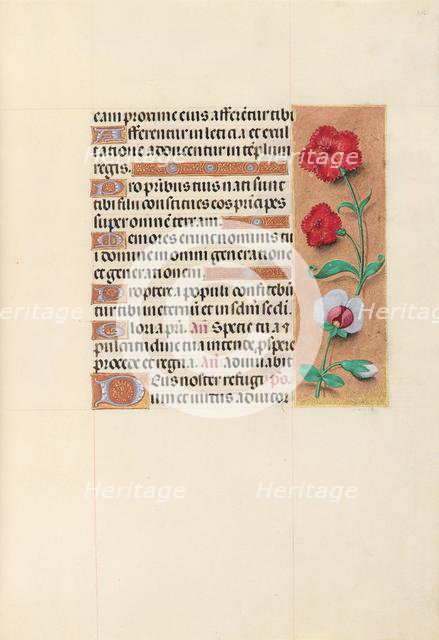 eam proxime eius afferẽtur tibi
Afferentur in leticia et exul
tatione adducentur in tẽplum
regis.
Pro pr̃ibus tuis nati sunt
tibi filii constitues eos prĩcipes
super omnẽ terram.
Memores erunt nominis tu
i domine in omni generatione
et generationem
Propterea populi confitebũ
tur tibi in eternũ et in sclm̃ scli.
Gloria pri. Añ Specie tua et
pulcitudine tua intende, pspere
procede et regna. Añ Adiuuabit
Deus noster refugi ps.
um et uirtus adiutor
Heritage
Heritage
Heritage
Heritage
Heritage
Heritage